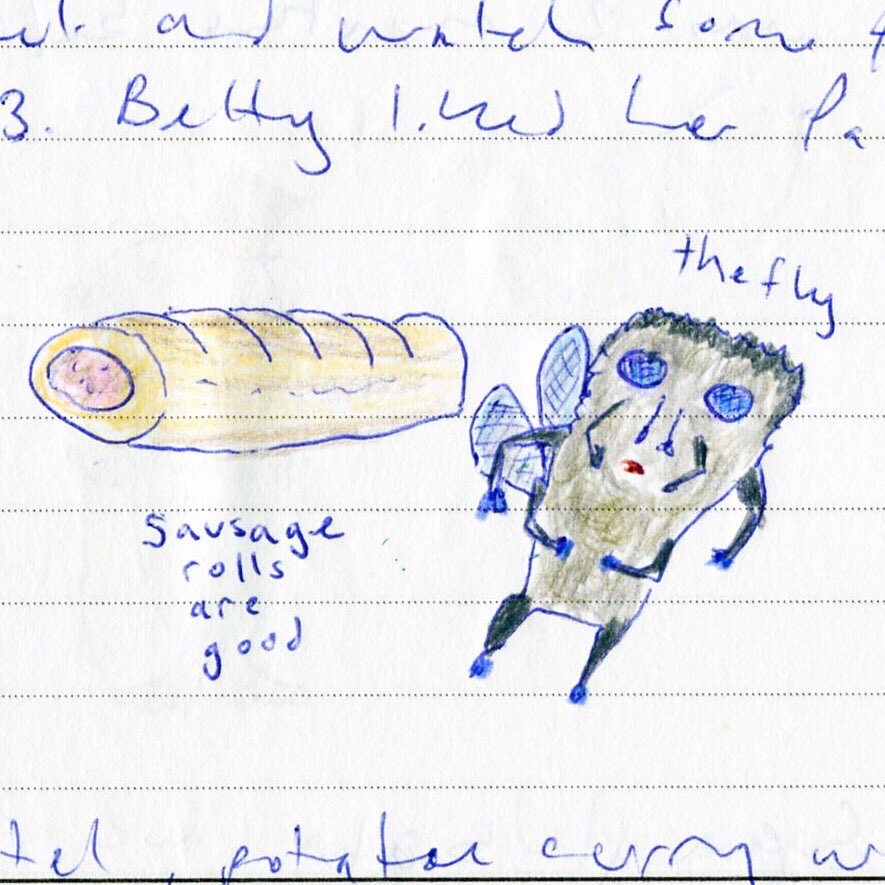 and watch some
3. Betty liked her Pa
the fly
sausage
rolls
are
good
, potatoe curry w